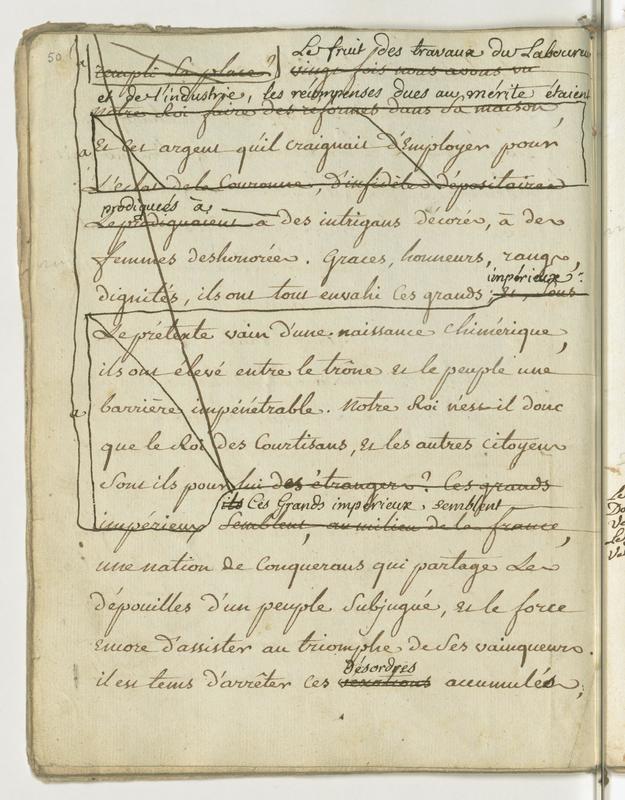 50
Le fruit des travaux du Laboureur
rempli sa place? vingt fois nous avons vu
et de l'industrie, les récompenses dues au mérite étaient
Notre Roi faire des réformes dans sa maison,
a Et cet argent qu'il craignait d'Employer pour
L'éclat de la Couronne, d'infidèles dépositaires
prodigués à
Le prodiguaient a des intrigans décorés, à des
femmes deshonorées. Graces, honneurs, rangs,
impérieux
dignités, ils ont tout envahi ces grands; Et, sous
Le prétexte vain d'une naissance chimérique,
ils ont élevé entre le trône et le peuple une
a barrière impénétrable. Notre Roi n'est-il donc
que le Roi des Courtisans, et les autres citoyens
sont ils pour lui des étrangers? Ces grands
ils Ces Grands impérieux, semblent
impérieux semblent, au milieu de la france,
une nation de Conquerans qui partage Les
dépouilles d'un peuple subjugué, et le force
Encore d'assister au triomphe de Ses vainqueurs.
désordres
il est tems d'arrêter ces vexations accumulés,